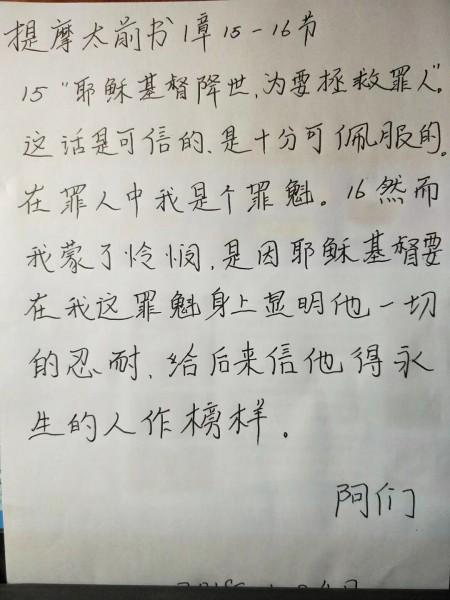 提摩太前书1章15-16节
15“耶稣基督降世,为要拯救罪人”。
这话是可信的、是十分可佩服的。
在罪人中我是个罪魁。16然而
我蒙了怜悯,是因耶稣基督要
在我这罪魁身上显明他一切
的忍耐、给后来信他得永
生的人作榜样。
阿们